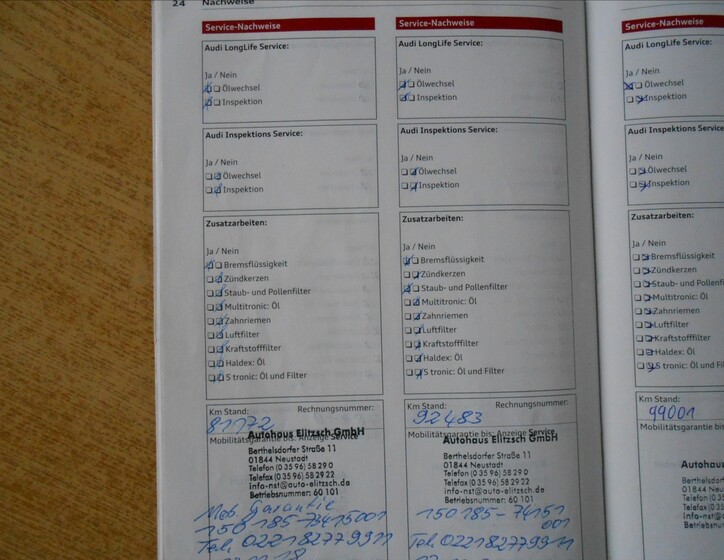 24 Nachweise
Service-Nachweise
Audi LongLife Service:
Ja / Nein
Ölwechsel
Inspektion
Audi Inspektions Service:
Ja / Nein
Ölwechsel
Inspektion
Zusatzarbeiten:
Ja / Nein
Bremsflüssigkeit
Zündkerzen
Staub- und Pollenfilter
Multitronic: Öl
Zahnriemen
Luftfilter
Kraftstofffilter
Haldex: Öl
S tronic: Öl und Filter
Km Stand: Rechnungsnummer:
81172
Mobilitätsgarantie bis: Anzeige Service
Autohaus Elitzsch GmbH
Berthelsdorfer Straße 11
01844 Neustadt
Telefon (0 35 96) 58 29 0
Telefax (0 35 96) 58 29 22
info-nst@auto-elitzsch.de
Betriebsnummer: 60 101
Mob. Garantie
150 185-73415001
Tel. 022182779911
Service-Nachweise
Audi LongLife Service:
Ja / Nein
Ölwechsel
Inspektion
Audi Inspektions Service:
Ja / Nein
Ölwechsel
Inspektion
Zusatzarbeiten:
Ja / Nein
Bremsflüssigkeit
Zündkerzen
Staub- und Pollenfilter
Multitronic: Öl
Zahnriemen
Luftfilter
Kraftstofffilter
Haldex: Öl
S tronic: Öl und Filter
Km Stand: Rechnungsnummer:
92483
Mobilitätsgarantie bis: Anzeige Service
Autohaus Elitzsch GmbH
Berthelsdorfer Straße 11
01844 Neustadt
Telefon (0 35 96) 58 29 0
Telefax (0 35 96) 58 29 22
info-nst@auto-elitzsch.de
Betriebsnummer: 60 101
150 185-74151
001
Tel. 022182779911
Service-Nachweise
Audi LongLife Service:
Ja / Nein
Ölwechsel
Inspektion
Audi Inspektions Service:
Ja / Nein
Ölwechsel
Inspektion
Zusatzarbeiten:
Ja / Nein
Bremsflüssigkeit
Zündkerzen
Staub- und Pollenf
Multitronic: Öl
Zahnriemen
Luftfilter
Kraftstofffilter
Haldex: Öl
S tronic: Öl und F
Km Stand:
99001
Mobilitätsgarantie bis
Autoha
Berthelsdor
01844 Neu
Telefon (0 35
Telefax (0 35
info-nst@a
Betriebsnum